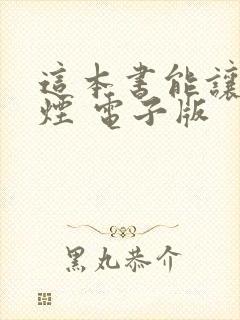 這本書能讓
煙 電子版
黑丸恭介